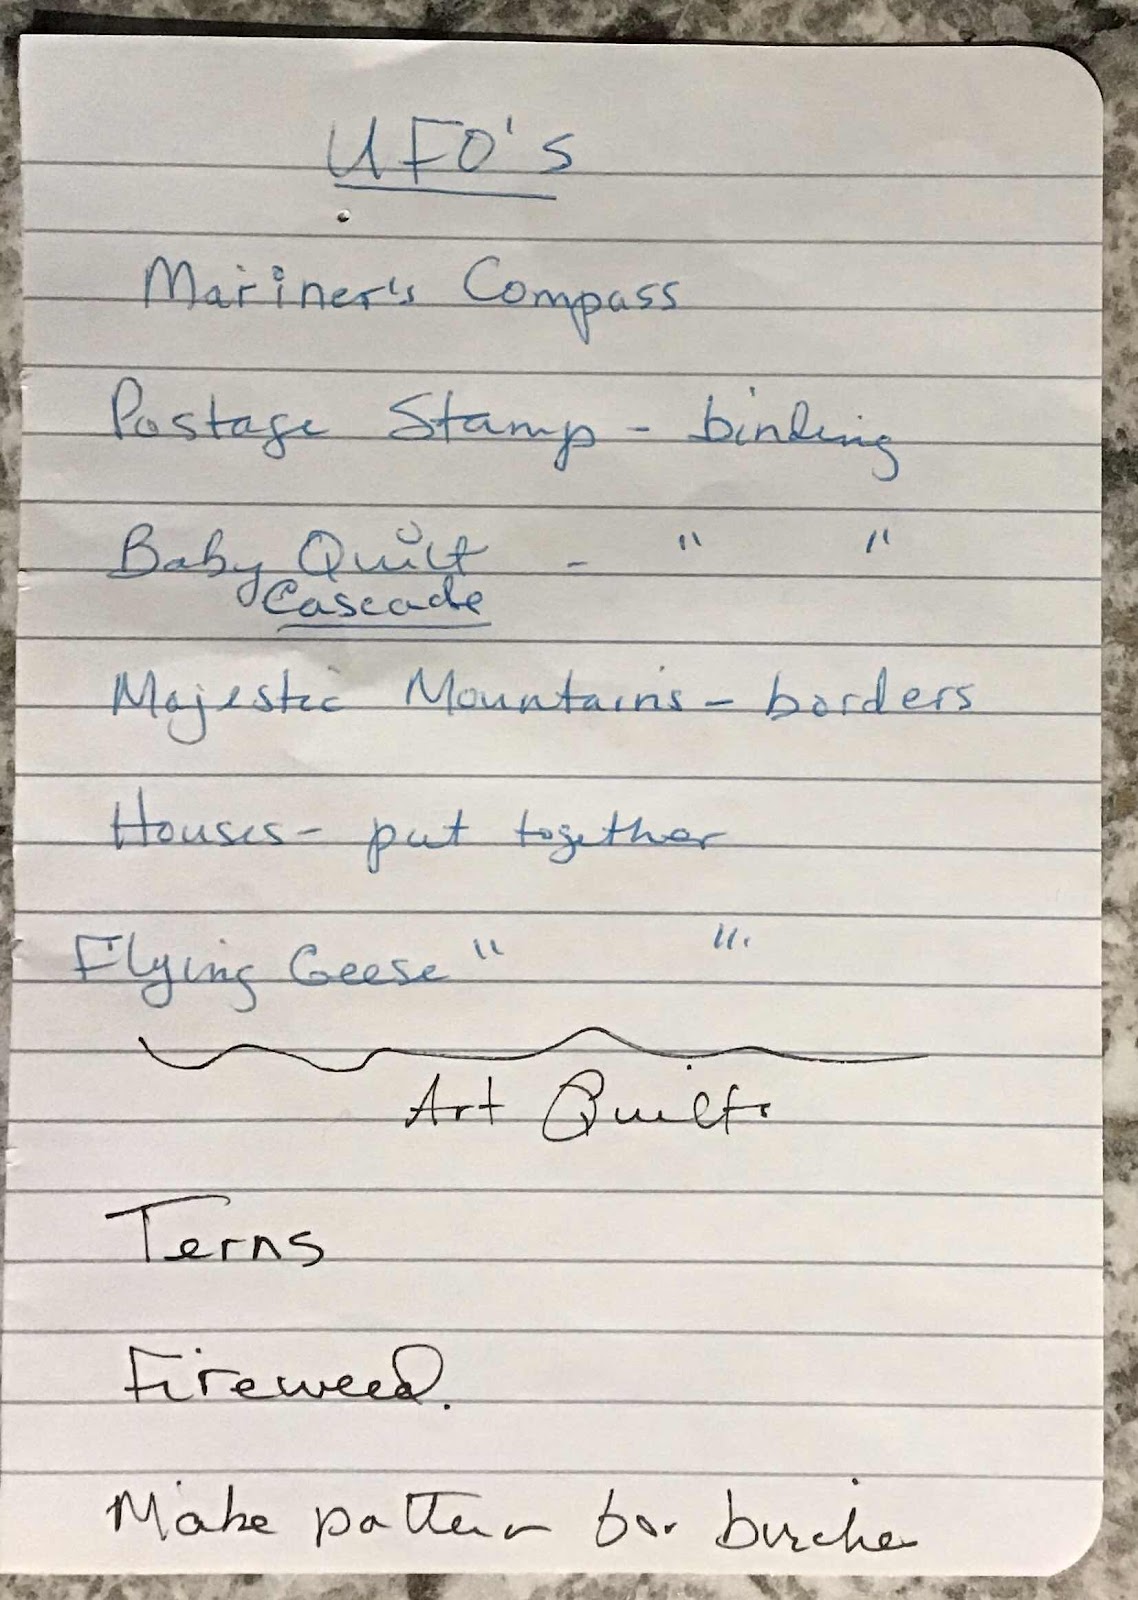 UFO's
Mariner's Compass
Postage Stamp - binding
Baby Quilt - " "
Cascade
Majestic Mountains - borders
Houses - put together
Flying Geese " ".
Art Quilts
Terns
Fireweed.
Make pattern for birches